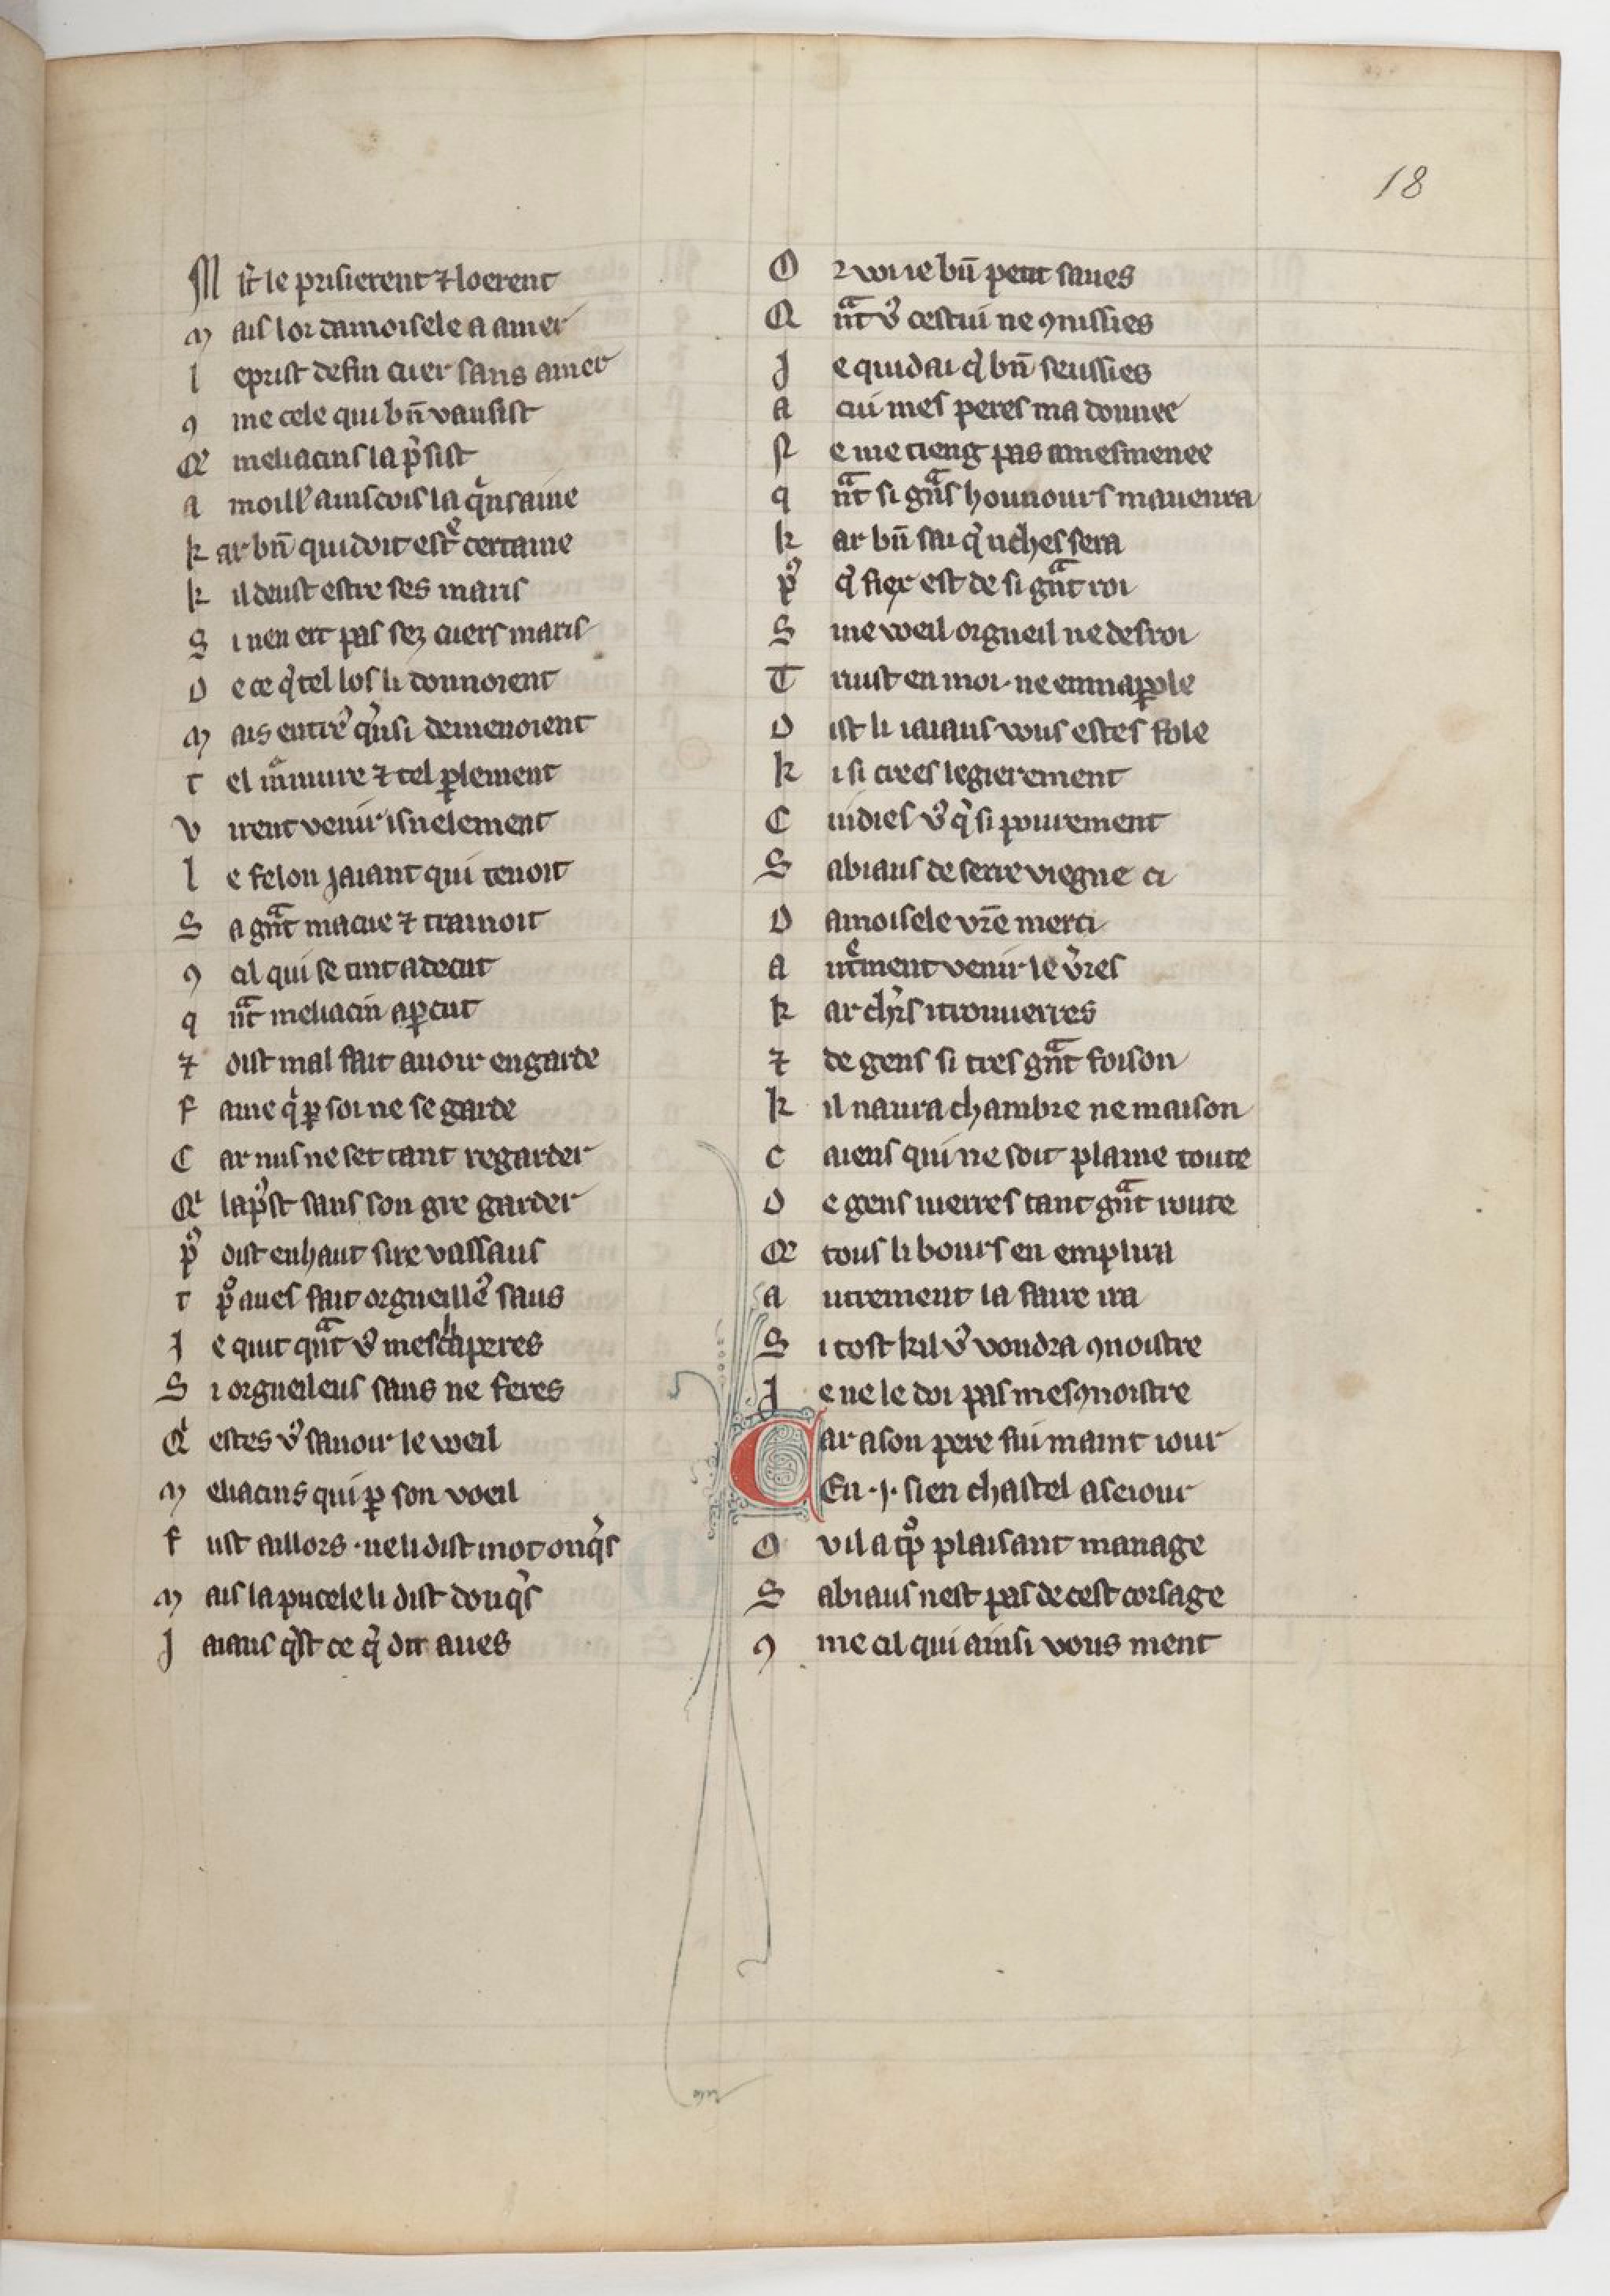 18
M lt̃ le prisierent ⁊ loerent
M ais lor damoisele a amer
l e prist de fin cuer sans amer
ꝯ me cele qui bn̄ vausist
Qe meliacins la p̓sist
a moillʼ ainscois la q̓nsaine
k ar bn̄ quidoit estᵉ certaine
k il deust estre ses maris
S i nen ert pas sez cuers maris
D e ce q̓ tel los li donnoient
M ais entreʼ q̓nsi demenoient
t el mᵘmure ⁊ tel ꝑlement
V irent venir isnelement
l e felon jaiant qui tenoit
S a gᵃnt macue ⁊ trainoit
ꝯ cil qui se tint a decut
q ᵃnt meliacin aꝑcut
⁊ dist mal fait auoir en garde
f ame q̓ ꝑ soi ne se garde
C ar nus ne set tant regarder
Qⁱ la p̓st sans son gre garder
pꝰ dist en haut sire vassaus
t pᵒ aues fait orgueilleꝰ saus
J e quit qᵃnt vꝰ meschaperes
S i orgueileus saus ne feres
Qⁱ estes vꝰ sauoir le weil
M eliacins qui ꝑ son voeil
f ust aillors · ne li dist mot onq̓s
M ais la pucele li dist donq̓s
J aians q̓st ce q̓ dit aues
O r voi ie bn̄ peut saues
Q ᵃnt vꝰ cestui ne ꝯnissies
J e quidai q̓ bn̄ seussies
a cui mes peres ma donnee
N e me tieng pas a mesmenee
q ᵃnt si gᵃns hounours mauenra
k ar bn̄ sai q̓ riches sera
pꝰ q̓ fiex est de si gᵃnt roi
S ine weil orgueil ne desroi
T ruist en moi · ne emmaꝑole
D ist li iaians vous estes fole
k i si crees legierement
C uidies vꝰ q̓ si pourement
S abiaus de serre viegne ci
D amoisele vr̄e merci
a utᵉment venir le vʼres
k ar chr̓s i trouuerres
⁊ de gens si tres gᵃnt foison
k il naura chambre ne maison
c aiens qui ne soit plaine toute
D e gens uerres tant gᵃnt route
Qe tous li bours en emplira
a utrement la faire ira
S i tost kil vꝰ voudra ꝯnoistre
J e ne le doi pas mesꝯnoistre
C ar a son pere fui maint iour
En .j. sien chastel a seiour
O v il a tpᵒ plaisant manage
S abiaus nest pas de cest corsage
ꝯ me cil qui ainsi vous ment